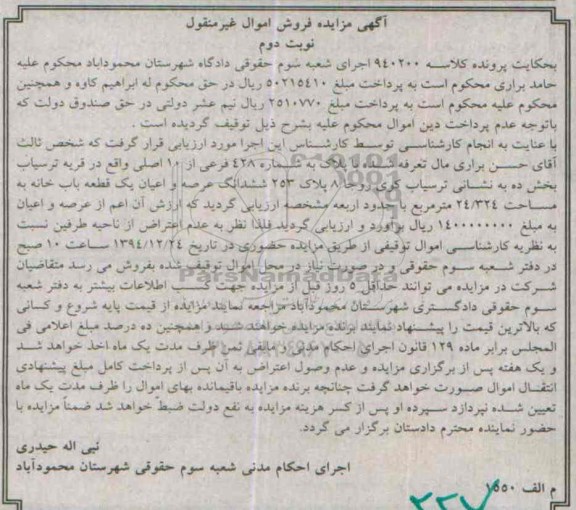 آگهی مزایده فروش اموال غیرمنقول
نوبت دوم
بحکایت پرونده کلاسه ۹۴۰۲۰۰ اجرای شعبه سوم حقوقی دادگاه شهرستان محموداباد محکوم علیه
حامد براری محکوم است به پرداخت مبلغ ۵۰۲۱۵۴۱۰ ریال در حق محکوم له ابراهیم کاوه و همچنین
محکوم علیه محکوم است به پرداخت مبلغ ۲۵۱۰۷۷۰ ریال نیم عشر دولتی در حق صندوق دولت که
باتوجه عدم پرداخت دین اموال محکوم علیه بشرح ذیل توقیف گردیده است .
با عنایت به انجام کارشناسی توسط کارشناس این اجرا مورد ارزیابی قرار گرفت که شخص ثالث
آقای حسن براری مال تعرفه نموده اند پلاک به شماره ۴۲۸ فرعی از ۱۰ اصلی واقع در قریه ترسیاب
بخش ده به نشانی ترسیاب کوی روجا ۸ پلاک ۲۵۳ ششدانگ عرصه و اعیان یک قطعه باب خانه به
مساحت ۲۴/۳۲۴ مترمربع با حدود اربعه مشخصه ارزیابی گردید که ارزش آن اعم از عرصه و اعیان
به مبلغ ۱۴۰۰۰۰۰۰۰۰ ریال برآورد و ارزیابی گردید فلذا نظر به عدم اعتراض از ناحیه طرفین نسبت
به نظریه کارشناسی اموال توقیفی از طریق مزایده حضوری در تاریخ ۱۳۹۴/۱۲/۲۴ ساعت ۱۰ صبح
در دفتر شعبه سوم حقوقی و در صورت نیاز در محل اموال توقیف شده بفروش می رسد متقاضیان
شرکت در مزایده می توانند حداقل ۵ روز قبل از مزایده جهت کسب اطلاعات بیشتر به دفتر شعبه
سوم حقوقی دادگستری شهرستان محمودآباد مراجعه نمایند مزایده از قیمت پایه شروع و کسانی
که بالاترین قیمت را پیشنهاد نمایند برنده مزایده خواهند شد و همچنین ده درصد مبلغ اعلامی فی
المجلس برابر ماده ۱۲۹ قانون اجرای احکام مدنی و مابقی ثمن ظرف مدت یک ماه اخذ خواهد شد
و یک هفته پس از برگزاری مزایده و عدم وصول اعتراض به آن پس از پرداخت کامل مبلغ پیشنهادی
انتقال اموال صورت خواهد گرفت چنانچه برنده مزایده باقیمانده بهای اموال را ظرف مدت یک ماه
تعیین شده نپردازد سپرده او پس از کسر هزینه مزایده به نفع دولت ضبط خواهد شد ضمناً مزایده با
حضور نماینده محترم دادستان برگزار می گردد.
نبی اله حیدری
اجرای احکام مدنی شعبه سوم حقوقی شهرستان محمودآباد
م الف ۱۵۵۰
۲۲۷
ParsNamadData